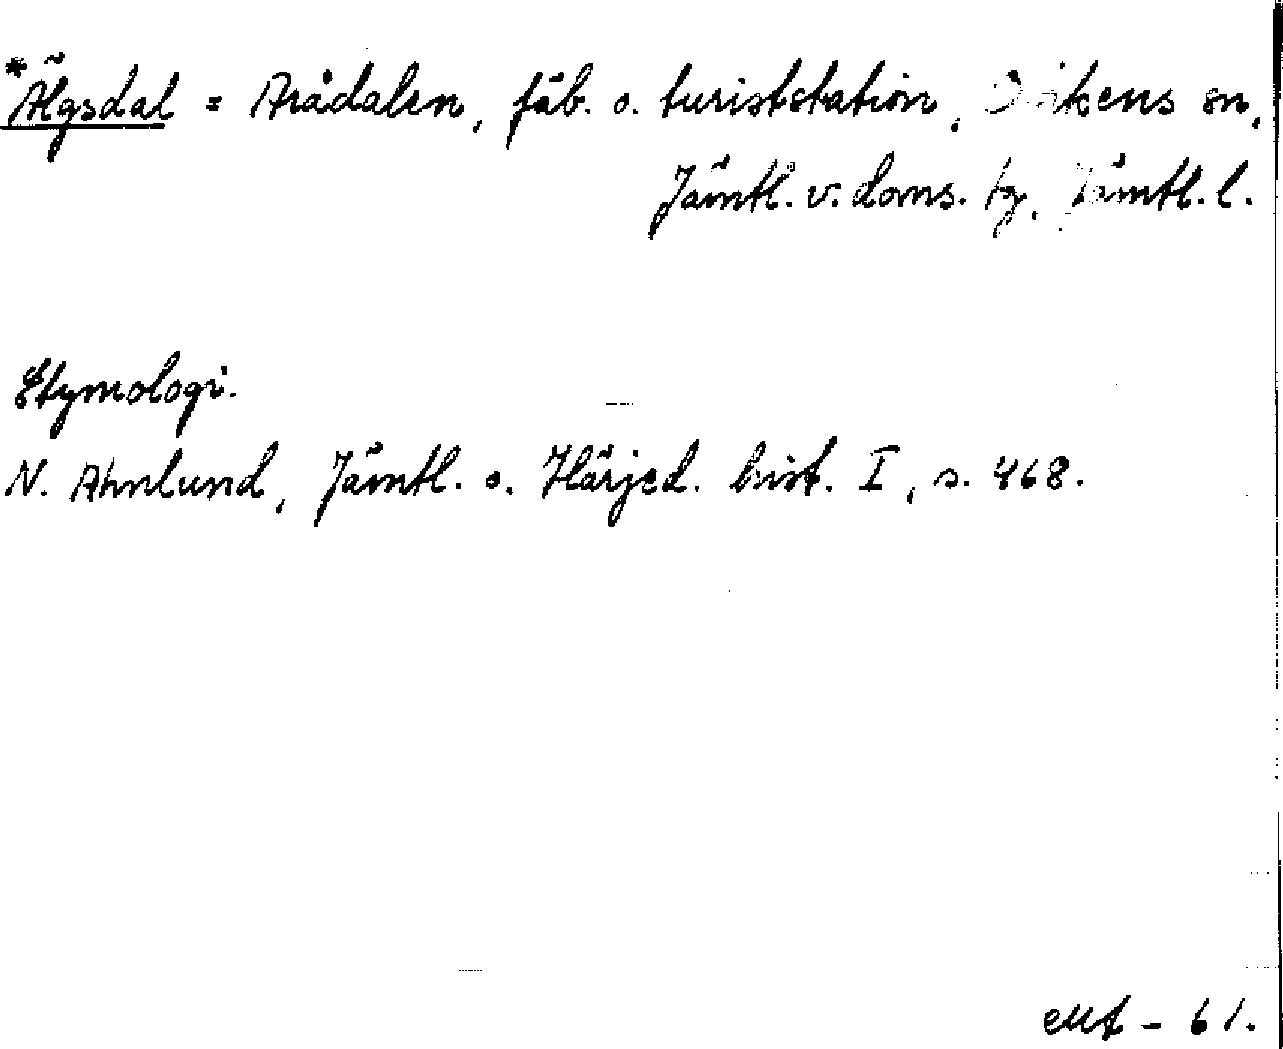 *Älgsdal = Arådalen, fäb. o. turiststation, Ovikens sn,
Jämtl. v. doms. tg, Jämtl. l.
Etymologi.
N. Ahnlund, Jämtl. o. Härjed. hist. I, s. 468.
- 61.